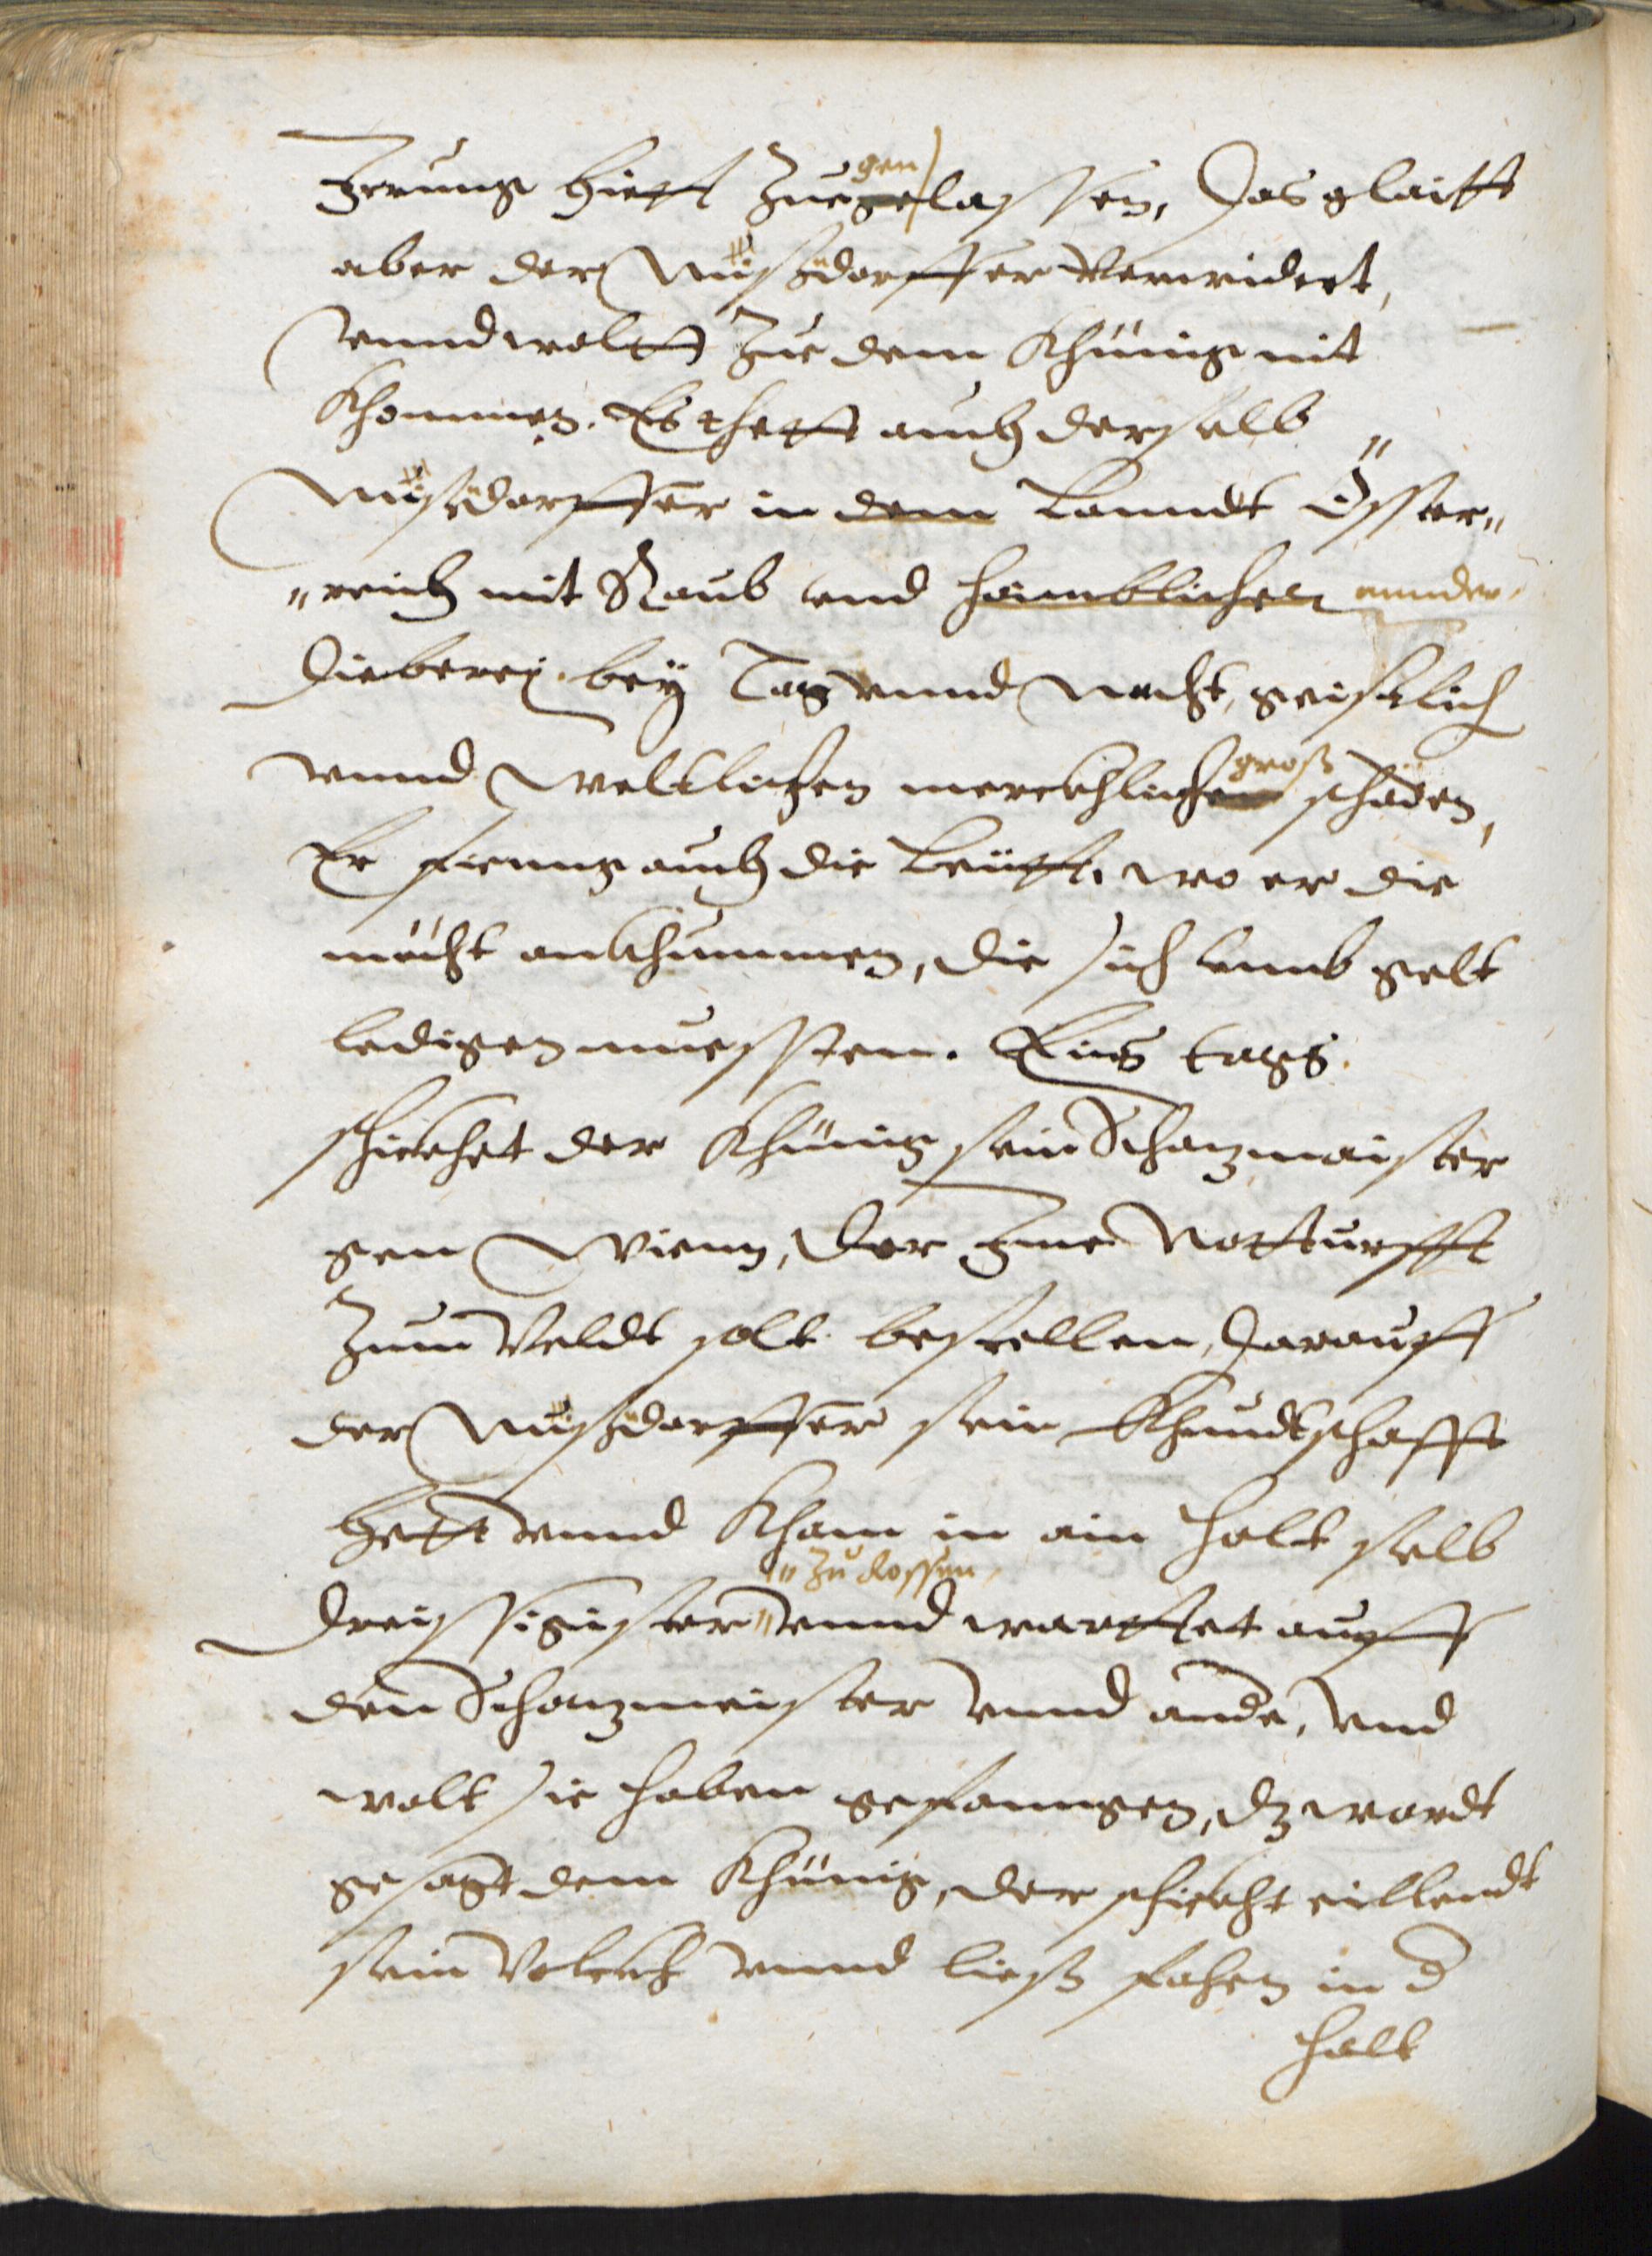 Herung hiett zuegelassen, Das glaitt
gen
aber der Nußdorffer verwidert,
vnnd wolt zue dem Khünig nit
Khommen. Es thett auch derselb
Nußdorffer in dem Lanndt Öster„
„reich mit Raub vnd haimblicher
Dieberej. bey Tag vnnd Nacht, geistlich
groß
vnnd weltlichen merckhlichen schaden,
Er fienng auch die Leütt. wo er die
mücht ankhummen, die sich vmb gelt
ledigen muessten. Eins tags.
schickhet der Khünig sein Schazmaister
gen Wienn, der Ime Notturfft
zum Veldt solt bestellen, Darauff
der Nußdorffer sein Khundtschafft
hett vnnd Kham in ain Halt selb
„zu Rossen
Dreissigister „ vnnd warttet auff
den Schazmeister vnnd ande, vnd
wolt sie haben gefanngen, dz wardt
gesagt dem Khünig, der schickht eillendt
sein Volckh vnnd ließ sehen in d
Halt